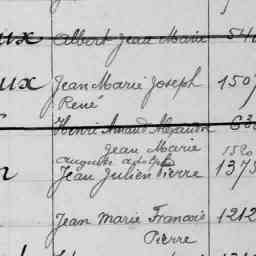 ux Albert Jean Marie 54
ux Jean Marie Joseph 150
René
Henri Amand Alexandre 63
Jean Marie 1520
Auguste Adolphe
Jean Julien Pierre 1375
Jean Marie François 1212
Pierre